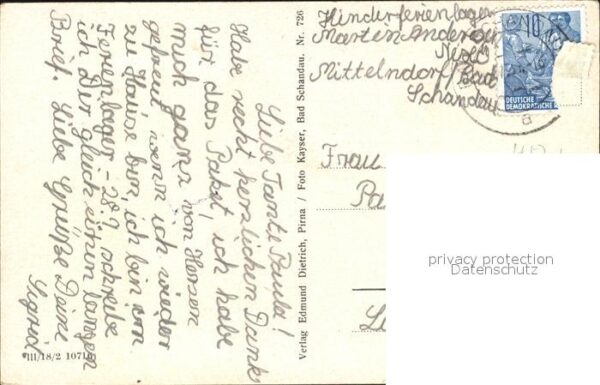 Liebe Tante Paula!
Habe recht herzlichen Dank
für das Paket, ich habe
mich ganz von Herzen
gefreut wenn ich wieder
zu Hause bin, ich bin im
Ferienlager – 28.7 schreibe
ich Dir gleich einen langen
Brief. Liebe Grüße Deine
Sigrid
III/18/2 107
Verlag Edmund Dietrich, Pirna / Foto Kayser, Bad Schandau. Nr. 726
Kinderferienlager
Marten Andersen
Nexö
Mittelndorf/Bad
Schandau
10
DEUTSCHE
DEMOKRATISCHE
Frau
privacy protection
Datenschutz